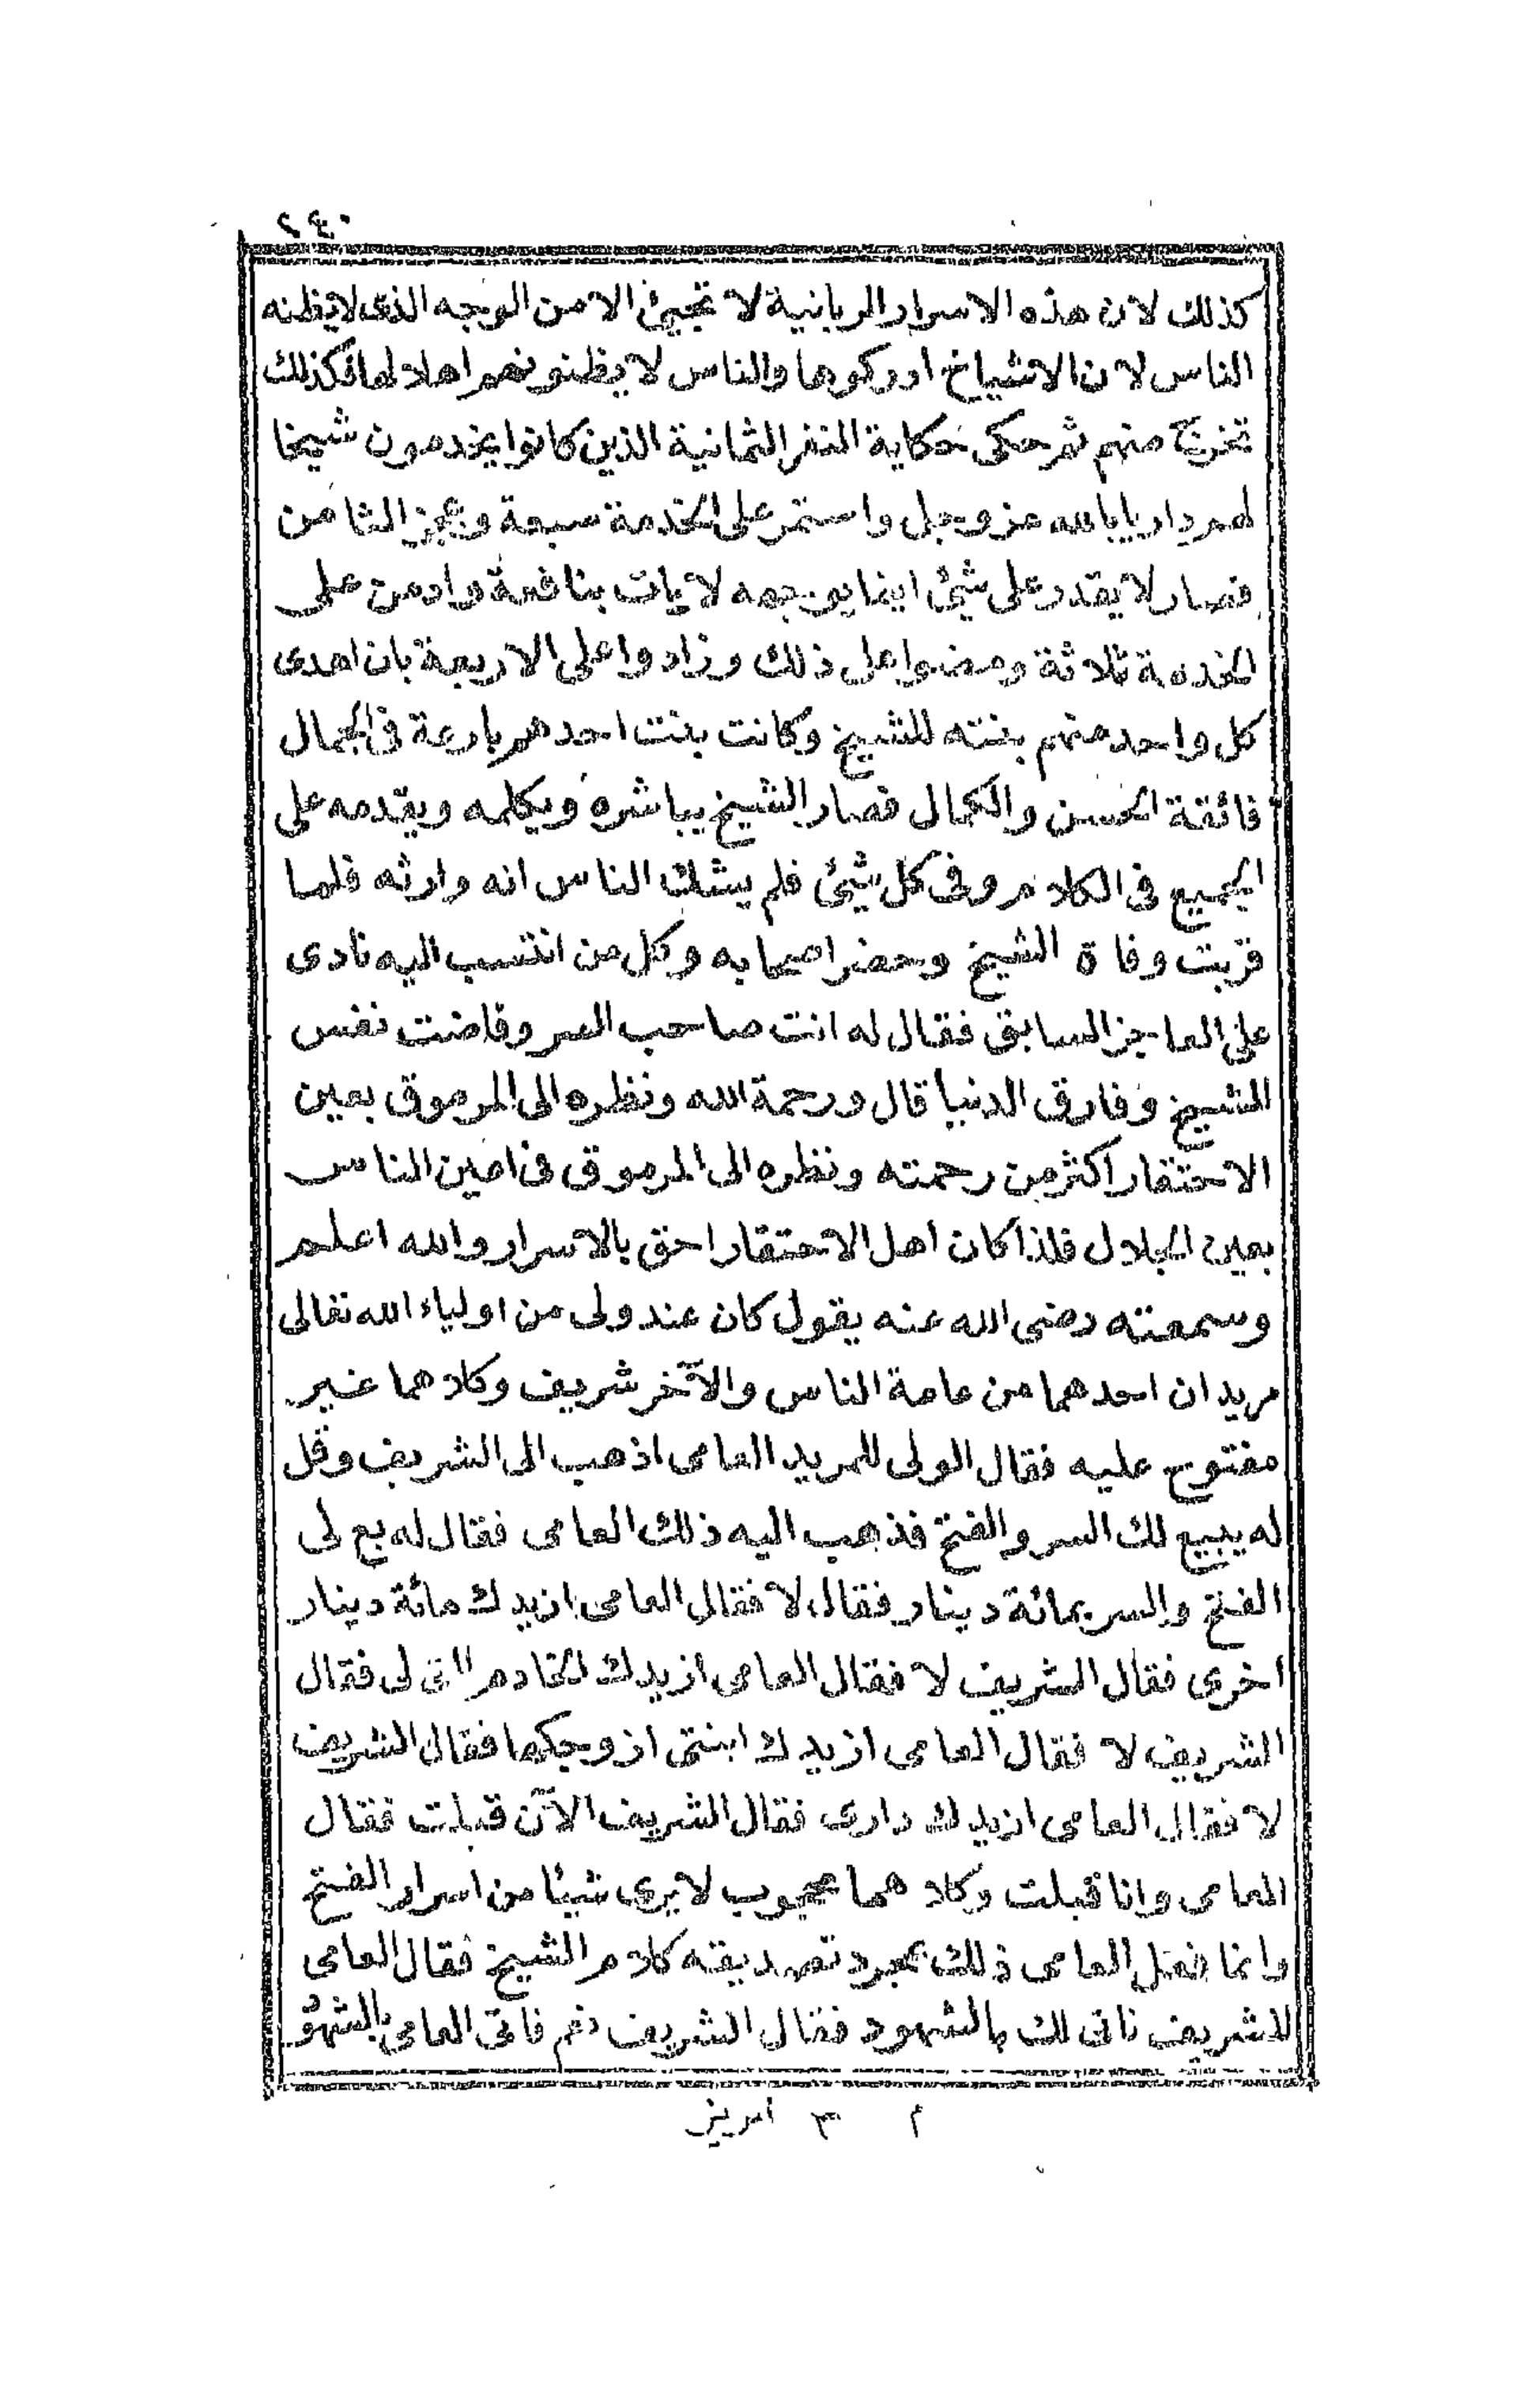 ٢٤٠
كذلك لان هذه الاسرار الربانية لا تجيئ الا من الوجه الذى لا يظنه
الناس لان الاشياخ ادركوها والناس لا يظنونهم اهلا لها فكذلك
تخرج منهم ثم حكى حكاية النفر الثمانية الذين كانوا يخدمون شيخا
لهم دار يا بالله عز وجل واستمر على الخدمة سبعة وعجز الثامن
فصار لا يقدر على شيئ اينما يوجهه لا يات بنافعة وادمن على
الخدمة ثلاثة ومضوا على ذلك وزادوا على الاربعة بان اهدى
كل واحد منهم بنته للشيخ وكانت بنت احدهم بارعة فى الجمال
فائقة الحسن والكمال فصار الشيخ يباشره ويكلمه ويقدمه على
الجميع فى الكلام وفى كل شيئ فلم يشك الناس انه وارثه فلما
قربت وفاة الشيخ وحضر اصحابه وكل من انتسب اليه نادى
على العاجز السابق فقال له انت صاحب السر وفاضت نفس
الشيخ وفارق الدنيا قال ورحمة الله ونظره الى المرموق بعين
الاحتقار اكثر من رحمته ونظره الى المرموق فى اعين الناس
بعين الجلال فلذا كان اهل الاحتقار احق بالاسرار والله اعلم
وسمعته رضى الله عنه يقول كان عند ولى من اولياء الله تعالى
مريدان احدهما من عامة الناس والآخر شريف وكلاهما غير
مفتوح عليه فقال الولى للمريد العامى اذهب الى الشريف وقل
له يبيع لك السر والفتح فذهب اليه ذلك العامى فقال له بع لى
الفتح والسر بمائة دينار فقال لا فقال العامى ازيدك مائة دينار
اخرى فقال الشريف لا فقال العامى ازيدك الخادم التى لى فقال
الشريف لا فقال العامى ازيدك ابنتى ازوجكها فقال الشريف
لا فقال العامى ازيدك دارى فقال الشريف الآن قبلت فقال
العامى وانا قبلت وكلاهما محجوب لا يرى شيئا من اسرار الفتح
وانما فعل العامى ذلك بمجرد تصديقه كلام الشيخ فقال العامى
للشريف ناتى لك بالشهود فقال الشريف نعم فاتى العامى بالشهو
م ٣ ابريز